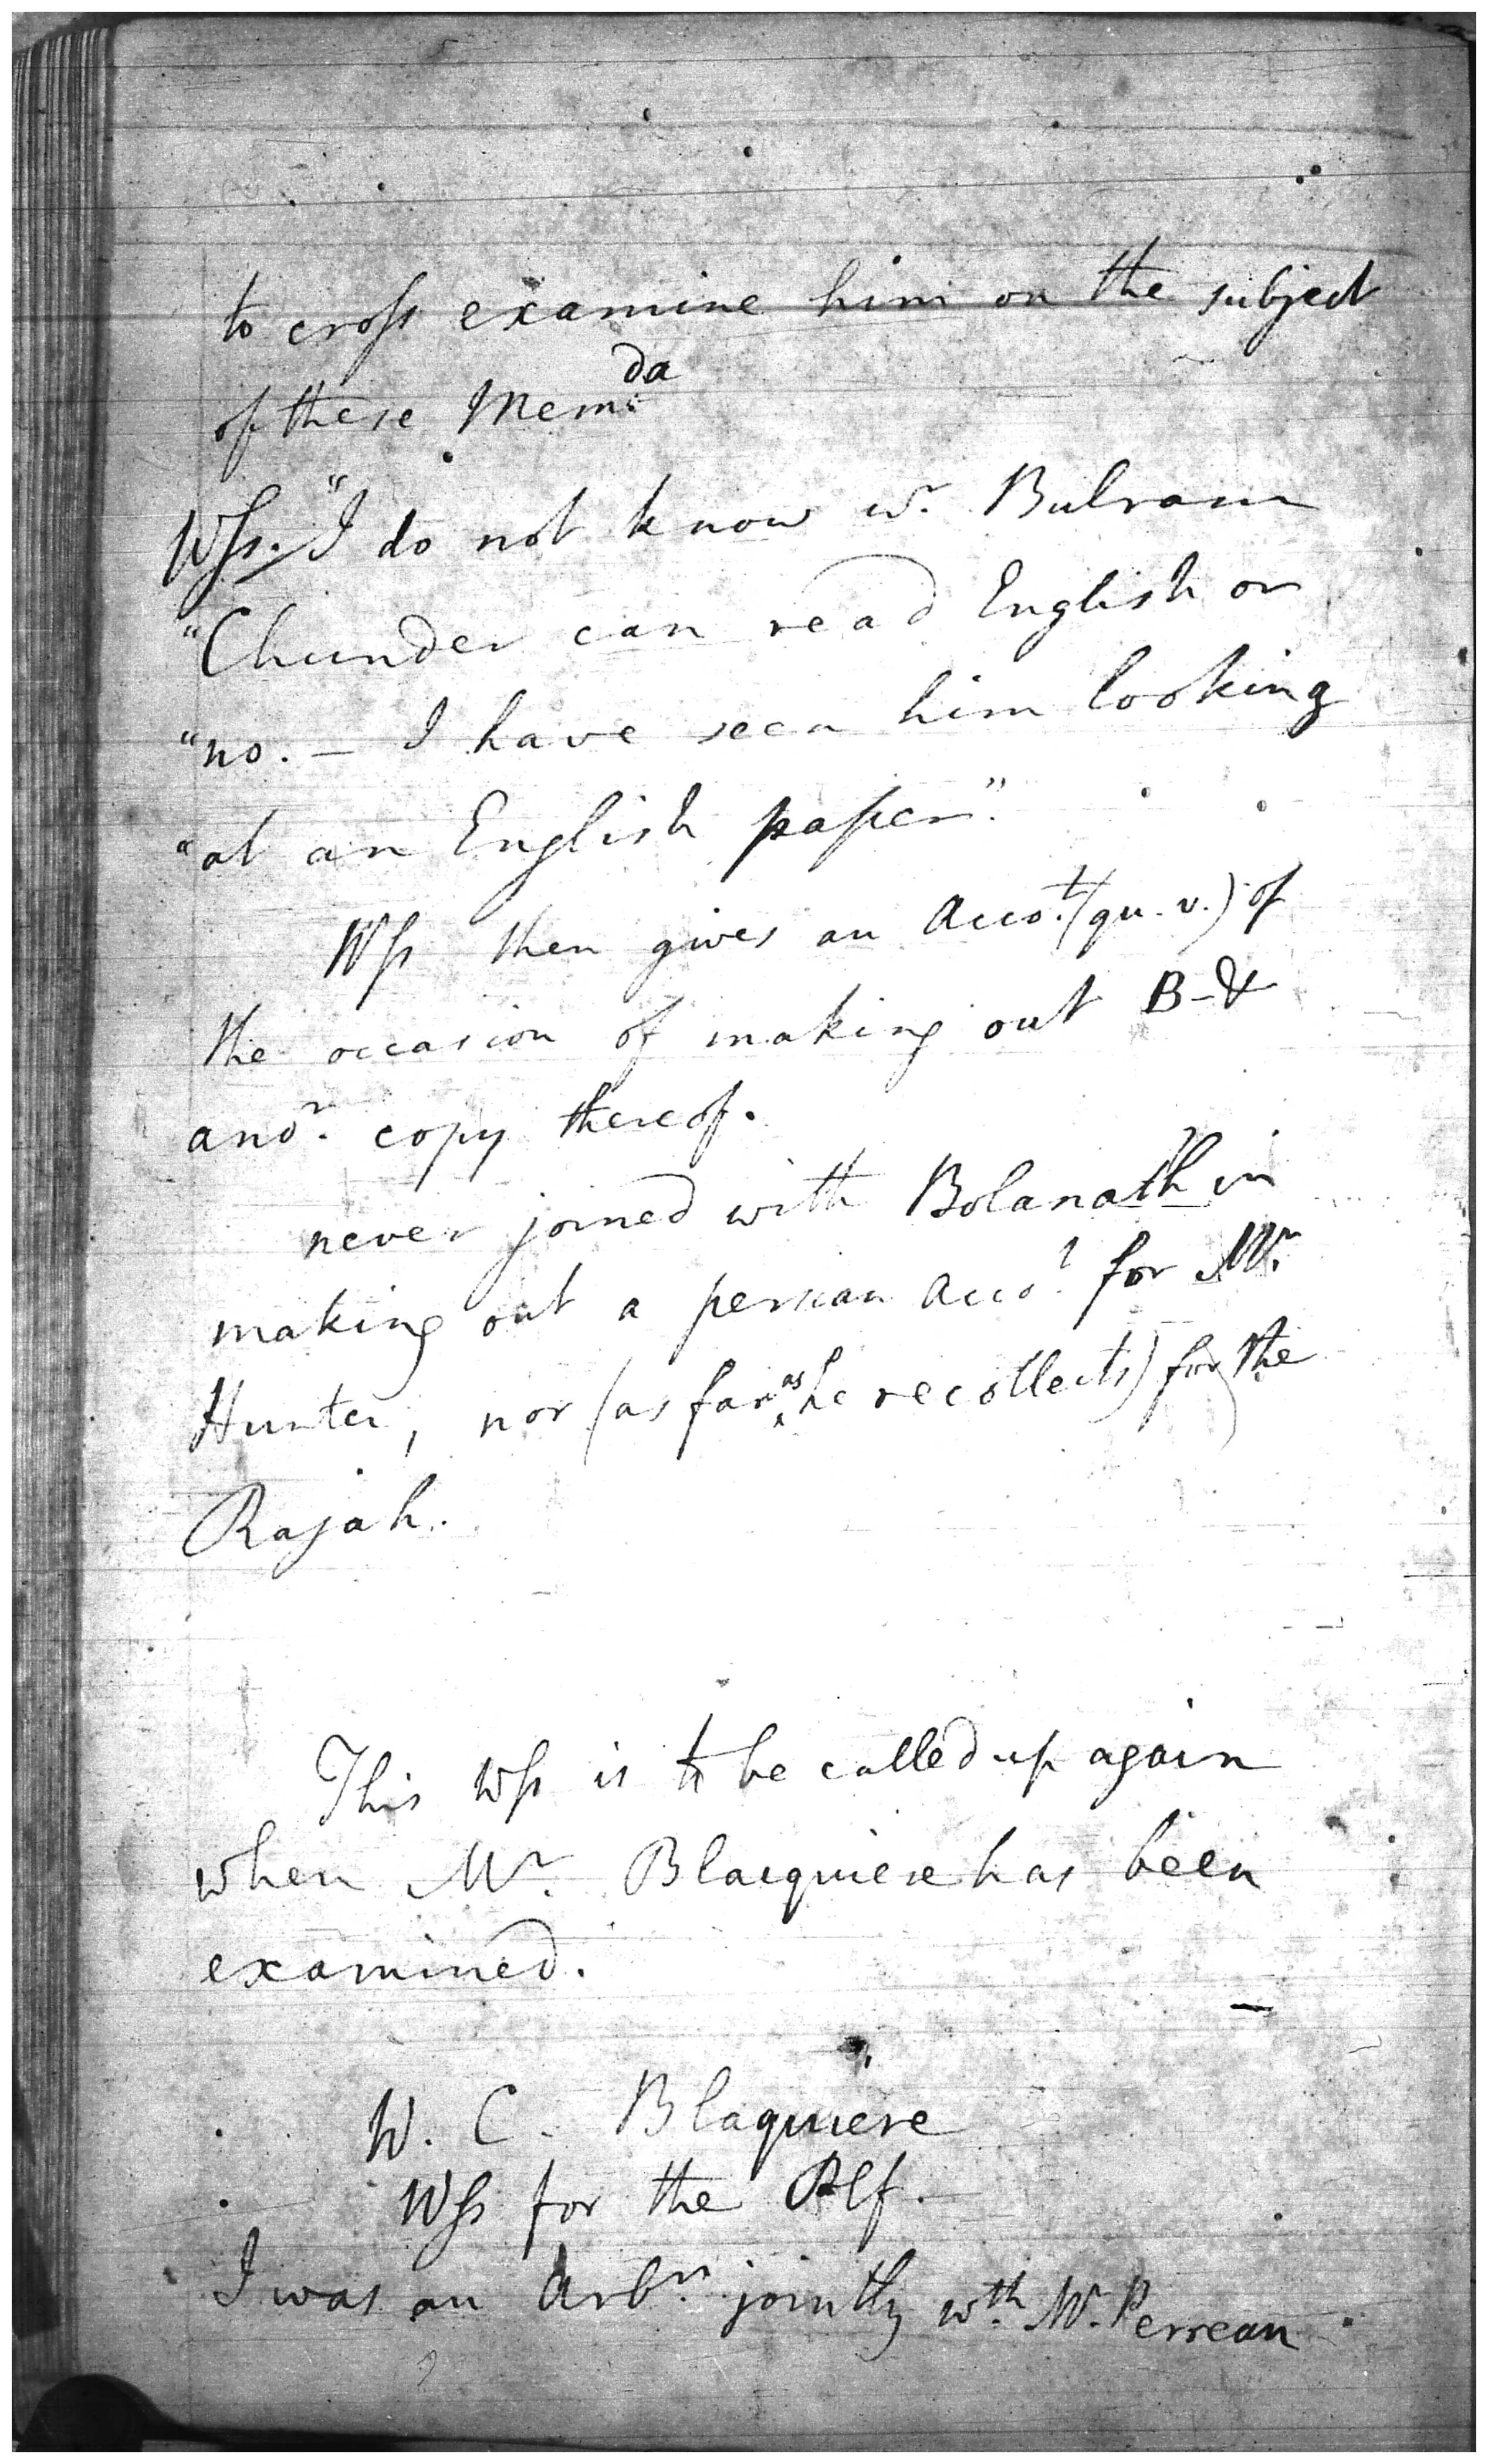 to cross examine him on the subject
of these Mem.da
Wss. "I do not know wr. Bulram
"Chunder can read English or
"no. – I have seen him looking
"at an English paper."
Wss then gives an Acco.t (qu. v.) of
the occasion of making out B – &
anor. copy thereof.
never joined with Bolanath in
making out a persian Acco.t for Mr.
Hunter, nor (as far as he recollects) for the
Rajah.
This Wss is to be called up again
when Mr. Blacquiere has been
examined.
W. C. Blaquiere
Wss for the Plf. –
I was an Arbr. jointly wth. Mr. Perreau